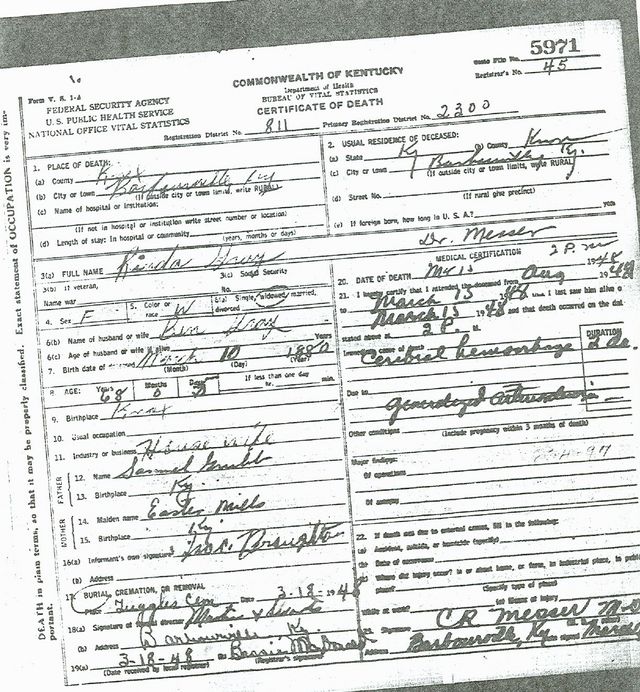 5971
State File No.
Registrar's No. 45
Form V. S. 1-A
COMMONWEALTH OF KENTUCKY
Department of Health
BUREAU OF VITAL STATISTICS
CERTIFICATE OF DEATH
FEDERAL SECURITY AGENCY
U. S. PUBLIC HEALTH SERVICE
NATIONAL OFFICE VITAL STATISTICS
Registration District No. 811
Primary Registration District No. 2300
DEATH in plain terms, so that it may be properly classified. Exact statement of OCCUPATION is very im-
portant.
1. PLACE OF DEATH:
(a) County Knox
(b) City or town Barbourville, Ky
(If outside city or town limits, write RURAL)
(c) Name of hospital or institution:
(If not in hospital or institution write street number or location)
(d) Length of stay: In hospital or community (years, months or days)
2. USUAL RESIDENCE OF DECEASED:
(a) State Ky (b) County Knox
(c) City or town Barbourville Ky.
(If outside city or town limits, write RURAL)
(d) Street No.
(If rural give precinct)
(e) If foreign born, how long in U. S. A.? years
Dr. Messer
3(a) FULL NAME
3(b) If veteran, 3(c) Social Security
Name war No.
4. Sex F 5. Color or race W 6(a) Single, widowed, married, divorced
6(b) Name of husband or wife
6(c) Age of husband or wife if alive Years
7. Birth date of March 10 1880
(Month) (Day) (Year)
8. AGE: Years 68 Months 0 Days
If less than one day
hr. min.
9. Birthplace Knox
10. Usual occupation
11. Industry or business House wife
FATHER
12. Name Samuel
13. Birthplace Ky.
MOTHER
14. Maiden name Easter Mills
15. Birthplace Ky.
16(a) Informant's own signature Broughton
(b) Address
17. BURIAL, CREMATION, OR REMOVAL
Place Tuggles Cem Date 3-18-1948
18(a) Signature of funeral director
(b) Address Barbourville Ky
19(a) 3-18-48 (b) Bessie
(Date received by local registrar) (Registrar's signature)
MEDICAL CERTIFICATION 2 P. m
20. DATE OF DEATH 1948
21. I hereby certify that I attended the deceased from Aug 194
March 13 1948 that I last saw him alive o
March 13 1948 and that death occurred on the dat
stated above at 2 P M.
Immediate cause of death
DURATION
Cerebral hemorrhage 2 da.
Due to
generalized
Other conditions (Include pregnancy within 3 months of death)
Major findings:
Of operations
Of autopsy
22. If death was due to external causes, fill in the following:
(a) Accident, suicide, or homicide (specify)
(b) Date of occurrence
(c) Where did injury occur? in or about home, on farm, in industrial place, in public
place? (Specify type of place)
While at work? (e) Means of injury
Signature C R Messer M.D
Address Barbourville, Ky